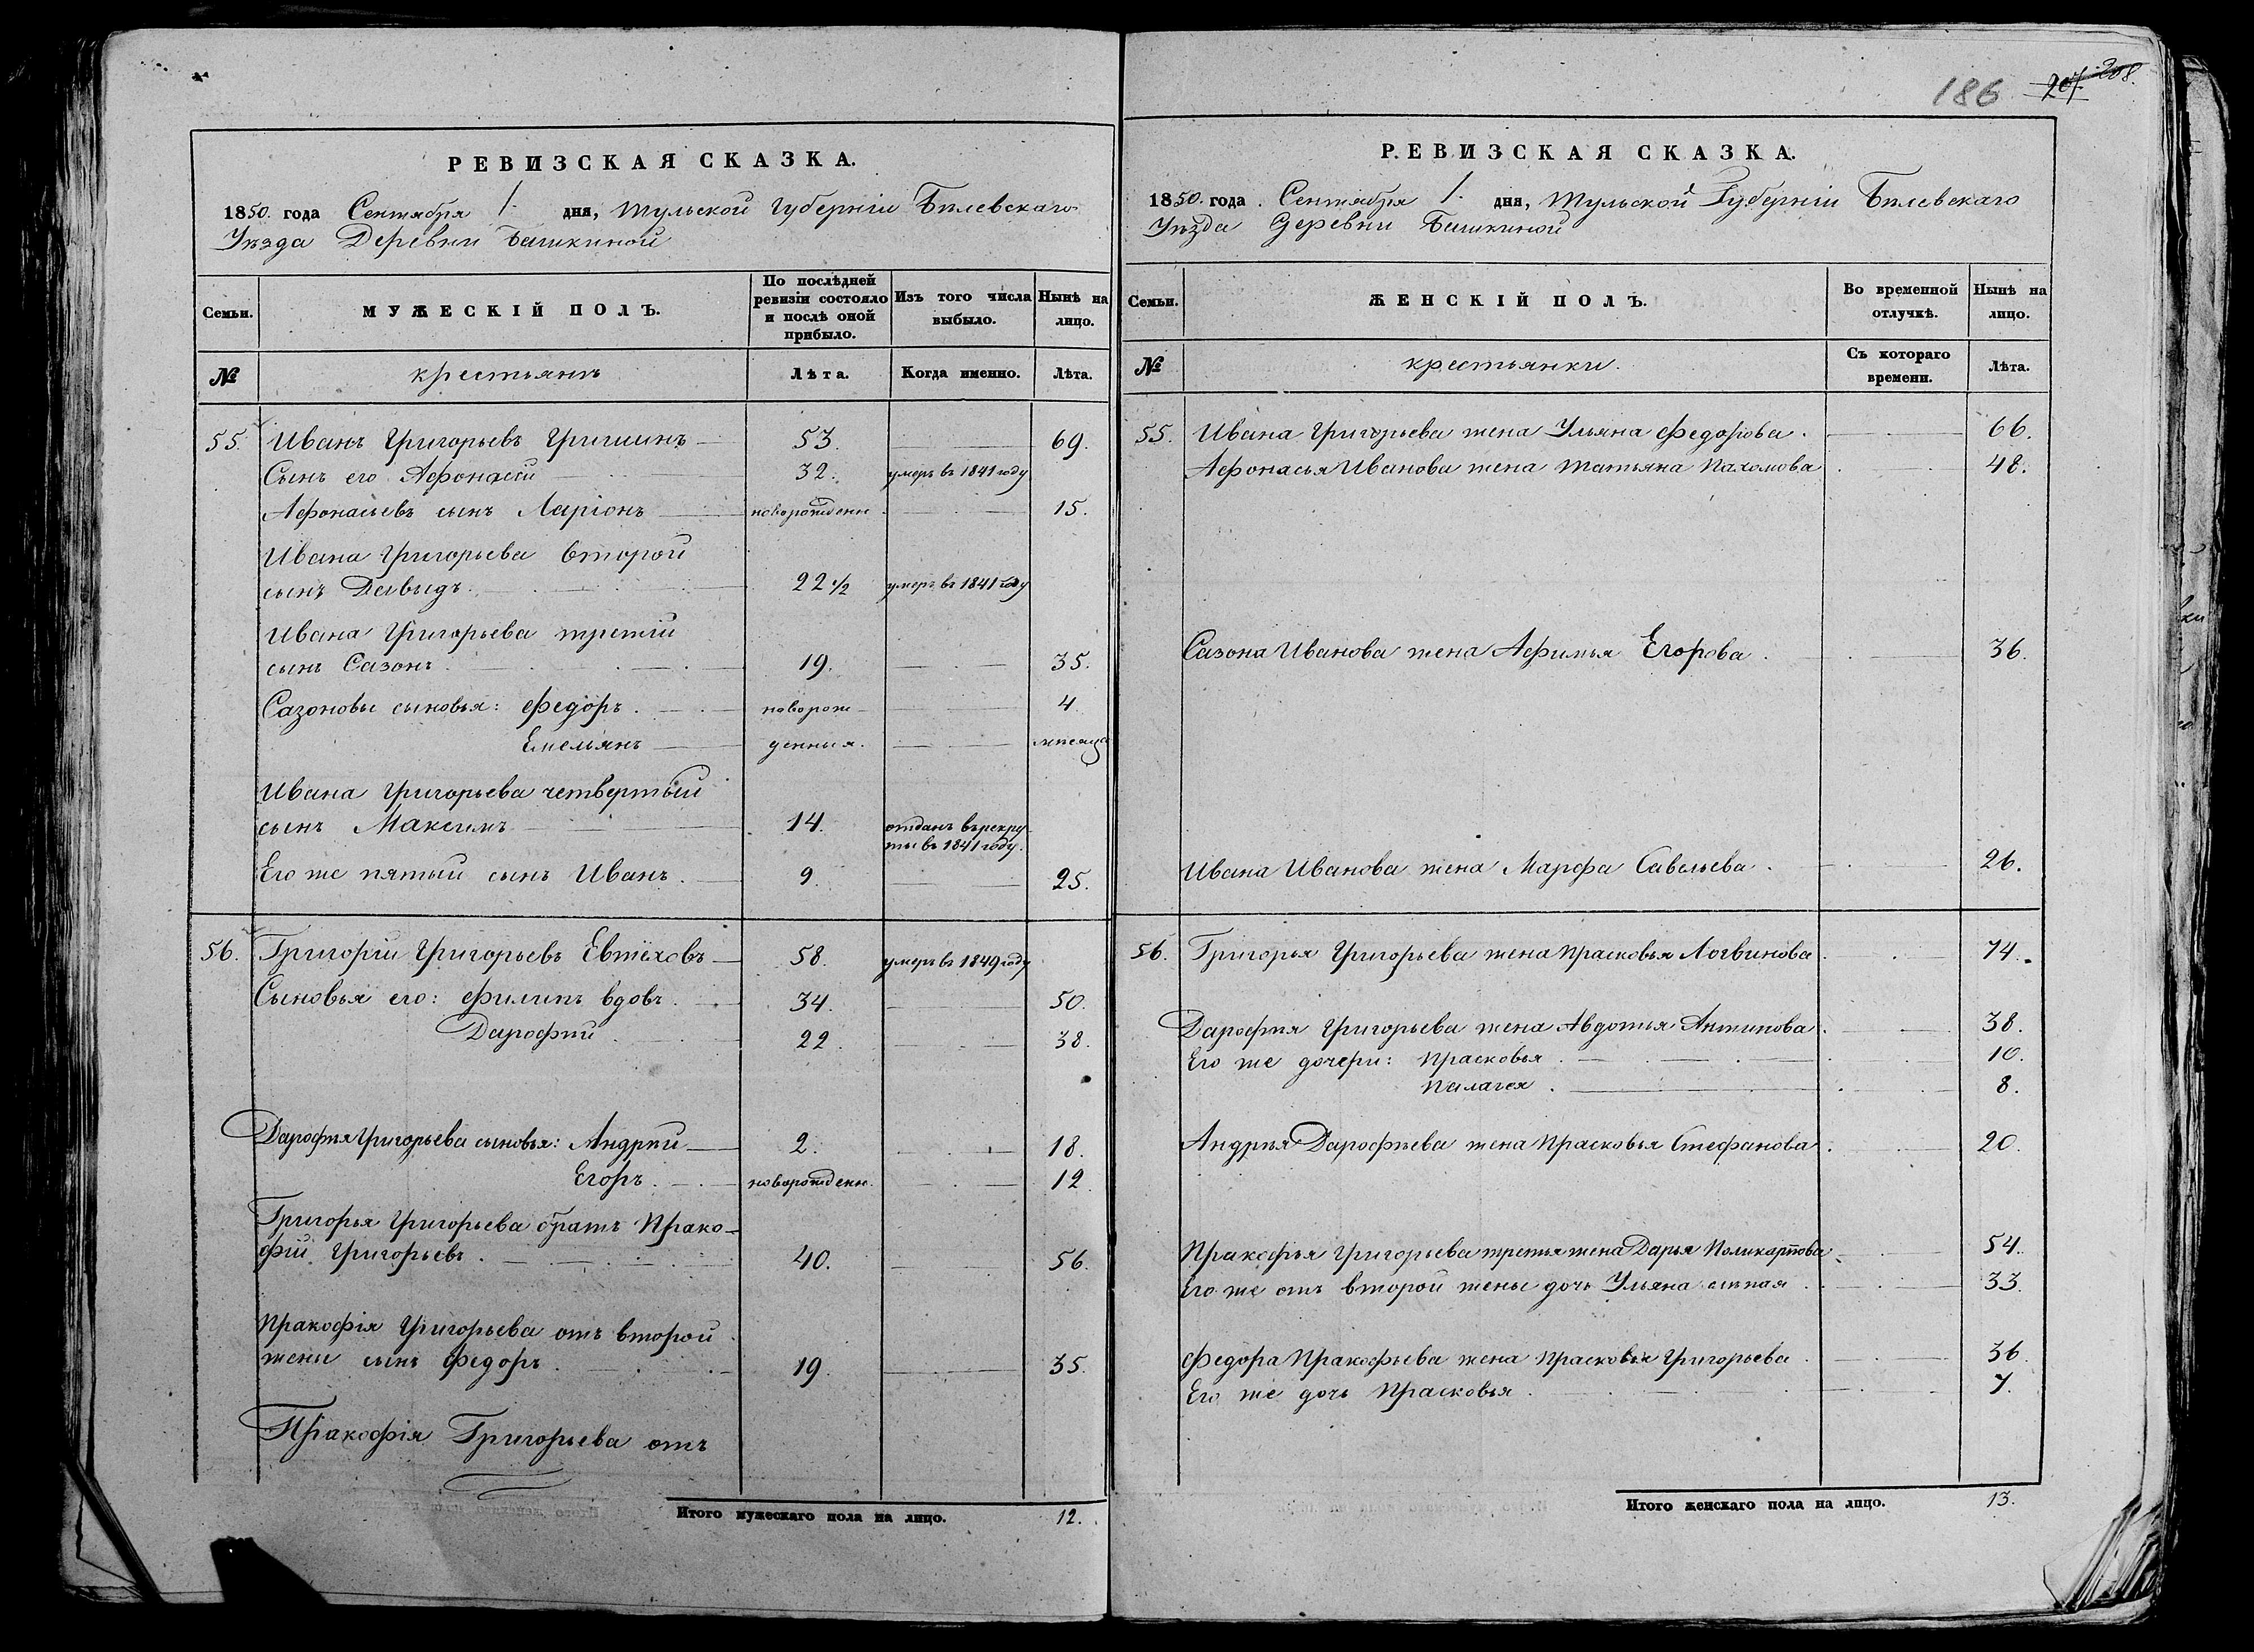 РЕВИЗСКАЯ СКАЗКА.
1850. года Сентября 1. дня, Тульской Губерніи Бѣлевскаго
Уѣзда Деревни Башкиной
Семьи.
МУЖЕСКІЙ ПОЛЪ.
По послѣдней ревизіи состояло и послѣ оной прибыло.
Изъ того числа выбыло.
Нынѣ на лицо.
№ крестьянъ Лѣта. Когда именно. Лѣта.
55. Иванъ Григорьевъ Гришинъ 53. 69.
Сынъ его Афонасій 32. умеръ въ 1841 году
Афонасьевъ сынъ Ларіонъ новорожденн 15.
Ивана Григорьева второй
сынъ Давыдъ. 22 1/2 умеръ въ 1841 году
Ивана Григорьева третій
сынъ Сазонъ. 19. 35.
Сазоновы сыновья: Федоръ. новорож- 4
Емельянъ денныя. мѣсяца
Ивана Григорьева четвертый
сынъ Максимъ 14. отданъ въ рекру-
ты въ 1841 году.
Его же пятый сынъ Иванъ. 9. 25.
56. Григорій Григорьевъ Евтѣховъ 58. умеръ въ 1849 году
Сыновья его: Филипъ вдовъ. 34. 50.
Дарофѣй 22. 38.
Дарофѣя Григорьева сыновья: Андрѣй 2. 18.
Егоръ. новорожденн. 12
Григорья Григорьева братъ Прако-
фій Григорьевъ. 40. 56.
Пракофія Григорьева отъ второй
жены сынъ Федоръ. 19. 35.
Пракофія Григорьева отъ
Итого мужескаго пола на лицо. 12.
186 207. 208.
РЕВИЗСКАЯ СКАЗКА.
1850. года. Сентября 1. дня, Тульской Губерніи Бѣлевскаго
Уѣзда Деревни Башкиной
Семьи.
ЖЕНСКІЙ ПОЛЪ.
Во временной отлучкѣ.
Нынѣ на лицо.
№ крестьянки. Съ котораго времени. Лѣта.
55. Ивана Григорьева жена Ульяна Федорова. 66.
Афонасья Иванова жена Татьяна Пахомова 48.
Сазона Иванова жена Афимья Егорова. 36.
Ивана Иванова жена Марфа Савельева. 26.
56. Григорья Григорьева жена Прасковья Логвинова 74.
Дарофѣя Григорьева жена Авдотья Антипова. 38.
Его же дочери: Прасковья. 10.
Палагея. 8.
Андрѣя Дарофѣева жена Прасковья Стефанова 20.
Пракофья Григорьева третья жена Дарья Поликарпова 54.
Его же отъ второй жены дочь Ульяна слѣпая. 33.
Федора Пракофьева жена Прасковья Григорьева. 36.
Его же дочь Прасковья. 7.
Итого женскаго пола на лицо. 13.